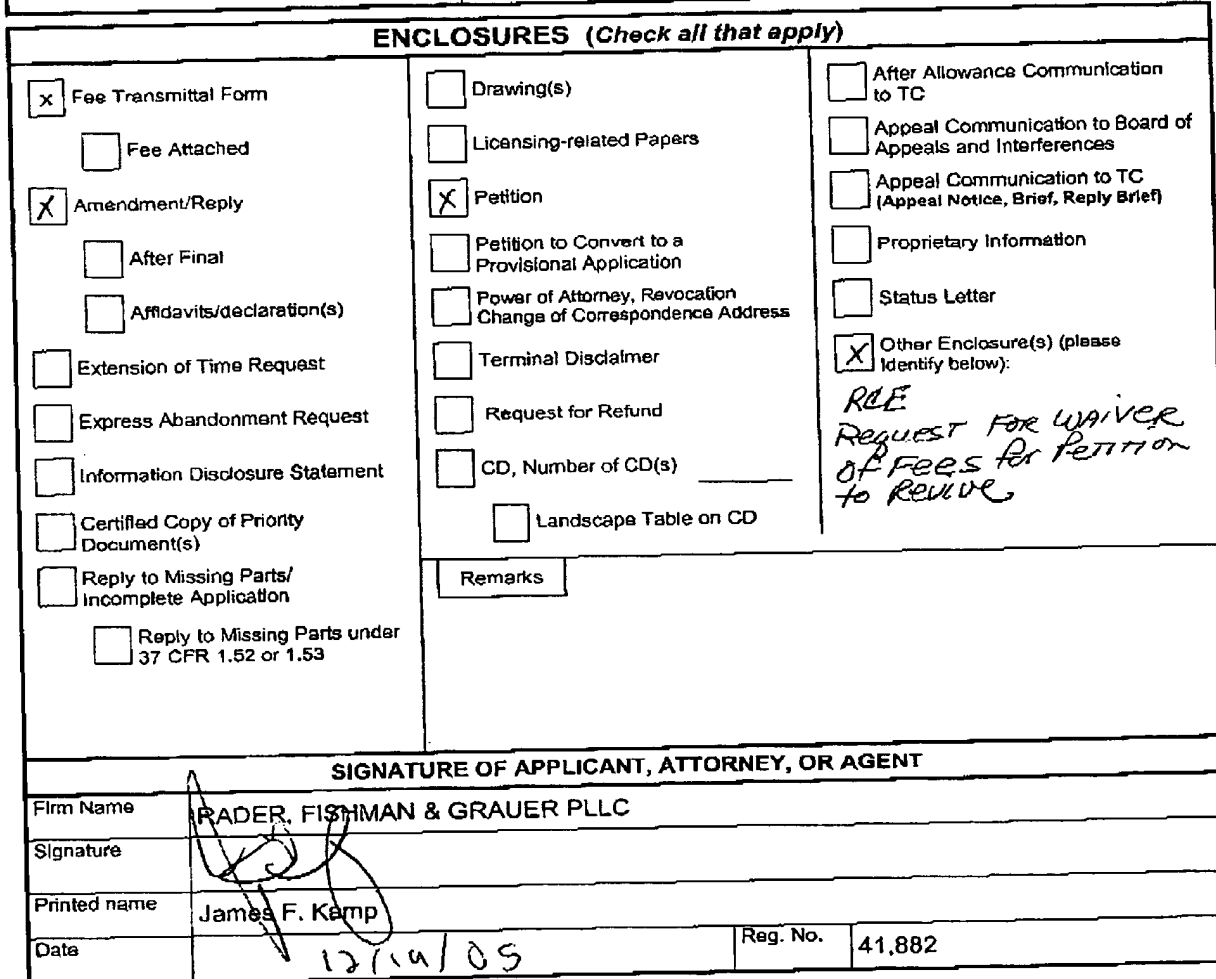 ENCLOSURES (Check all that apply)
x Fee Transmittal Form
Fee Attached
X Amendment/Reply
After Final
Affidavits/declaration(s)
Extension of Time Request
Express Abandonment Request
Information Disclosure Statement
Certified Copy of Priority
Document(s)
Reply to Missing Parts/
Incomplete Application
Reply to Missing Parts under
37 CFR 1.52 or 1.53
Drawing(s)
Licensing-related Papers
X Petition
Petition to Convert to a
Provisional Application
Power of Attorney, Revocation
Change of Correspondence Address
Terminal Disclaimer
Request for Refund
CD, Number of CD(s)
Landscape Table on CD
Remarks
After Allowance Communication
to TC
Appeal Communication to Board of
Appeals and Interferences
Appeal Communication to TC
(Appeal Notice, Brief, Reply Brief)
Proprietary Information
Status Letter
X Other Enclosure(s) (please
Identify below):
RCE
Request For Waiver
of Fees for Petition
to Revive
SIGNATURE OF APPLICANT, ATTORNEY, OR AGENT
Firm Name RADER, FISHMAN & GRAUER PLLC
Signature
Printed name James F. Kamp
Date 12/19/05 Reg. No. 41,882